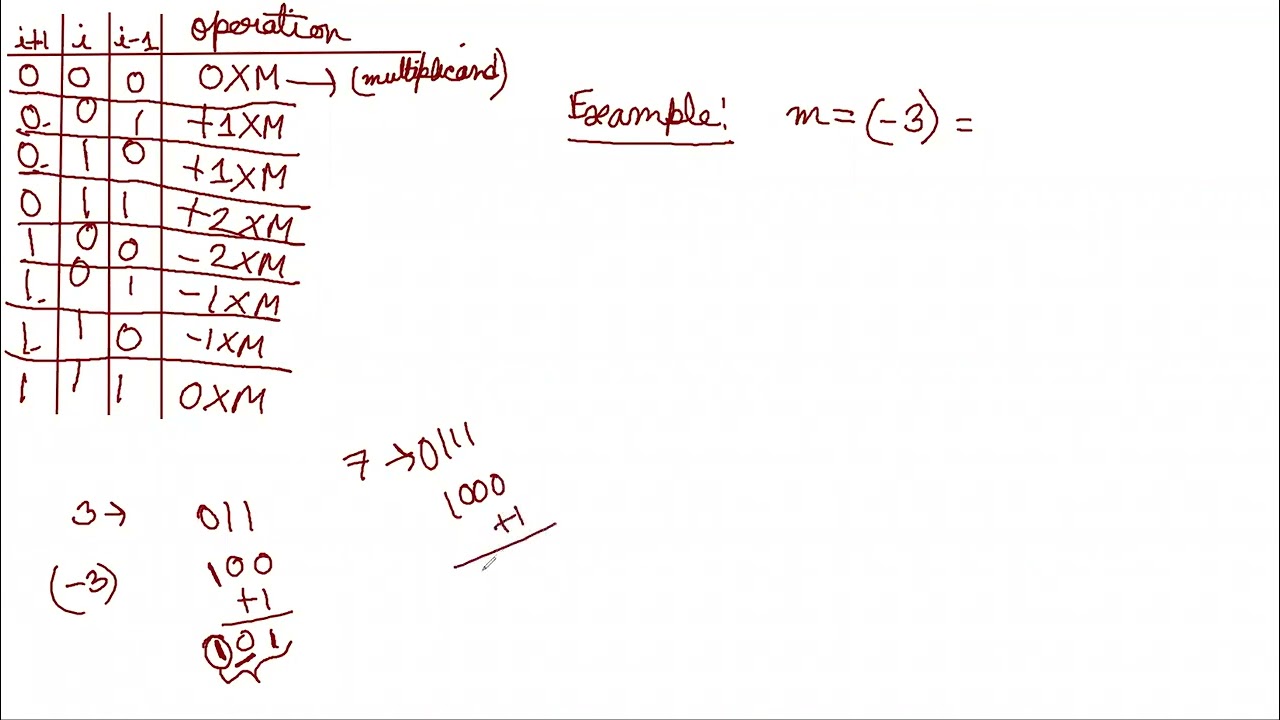 i+1 i i-1 operation
0 0 0 0XM → (multiplicand)
0 0 1 +1XM
0 1 0 +1XM
0 1 1 +2XM
1 0 0 -2XM
1 0 1 -1XM
1 1 0 -1XM
1 1 1 0XM
Example: m = (-3) =
7 → 0111
1000
+1
3 → 011
(-3) 100
+1
101